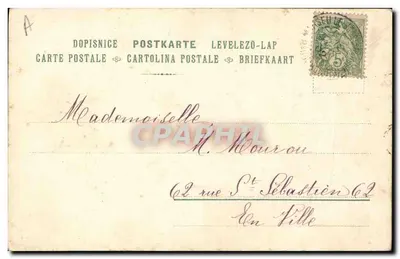 A
DOPISNICE POSTKARTE LEVELEZŐ-LAP
CARTE POSTALE CARTOLINA POSTALE BRIEFKAART
Mademoiselle
M. Mourou
62 rue St Sébastien 62
En Ville
CPARAMA
5